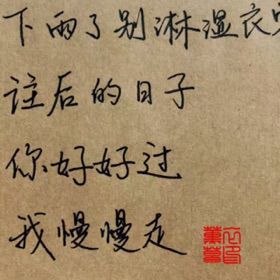 下雨了别淋湿衣
往后的日子
你好好过
我慢慢走